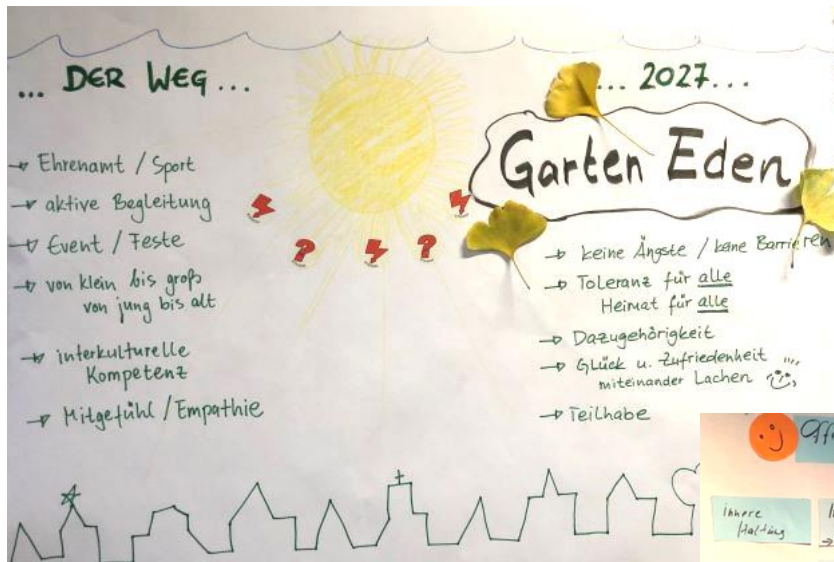 ... DER WEG ...
→ Ehrenamt / Sport
→ aktive Begleitung
→ Event / Feste
→ von klein bis groß
von jung bis alt
→ interkulturelle
Kompetenz
→ Mitgefühl / Empathie
? ?
... 2027...
Garten Eden
→ keine Ängste / keine Barrieren
→ Toleranz für alle
Heimat für alle
→ Dazugehörigkeit
→ Glück u. Zufriedenheit
miteinander Lachen
→ Teilhabe
innere
Haltung